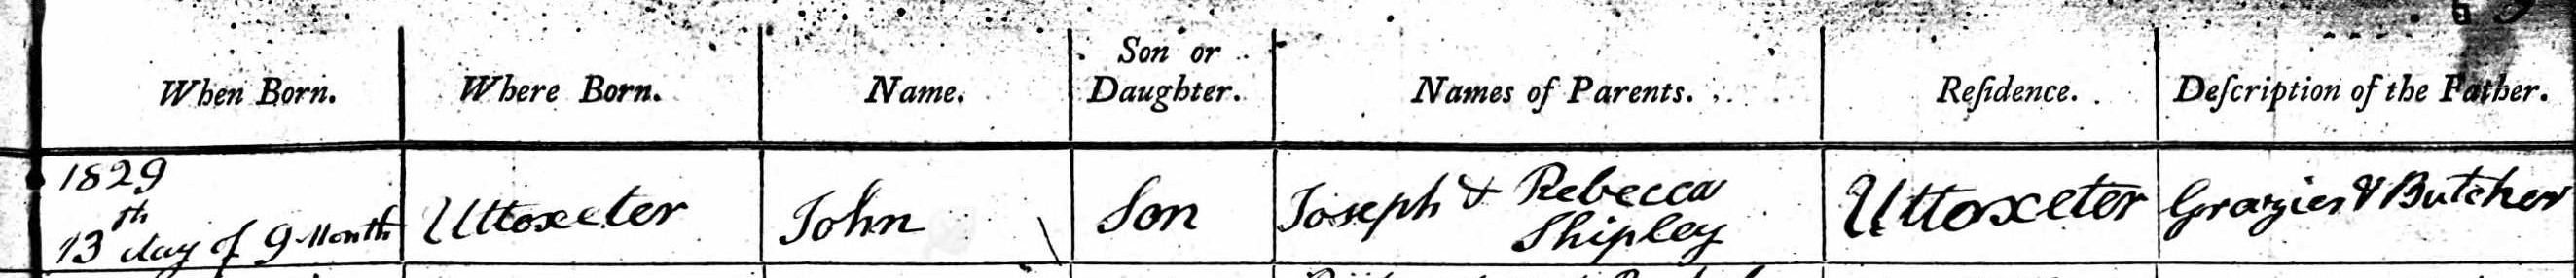 When Born.
Where Born.
Name.
Son or
Daughter.
Names of Parents.
Reſidence.
Deſcription of the Father.
1829
13th day of 9 Month
Uttoxeter
John
Son
Joseph & Rebecca
Shipley
Uttoxeter
Grazier & Butcher